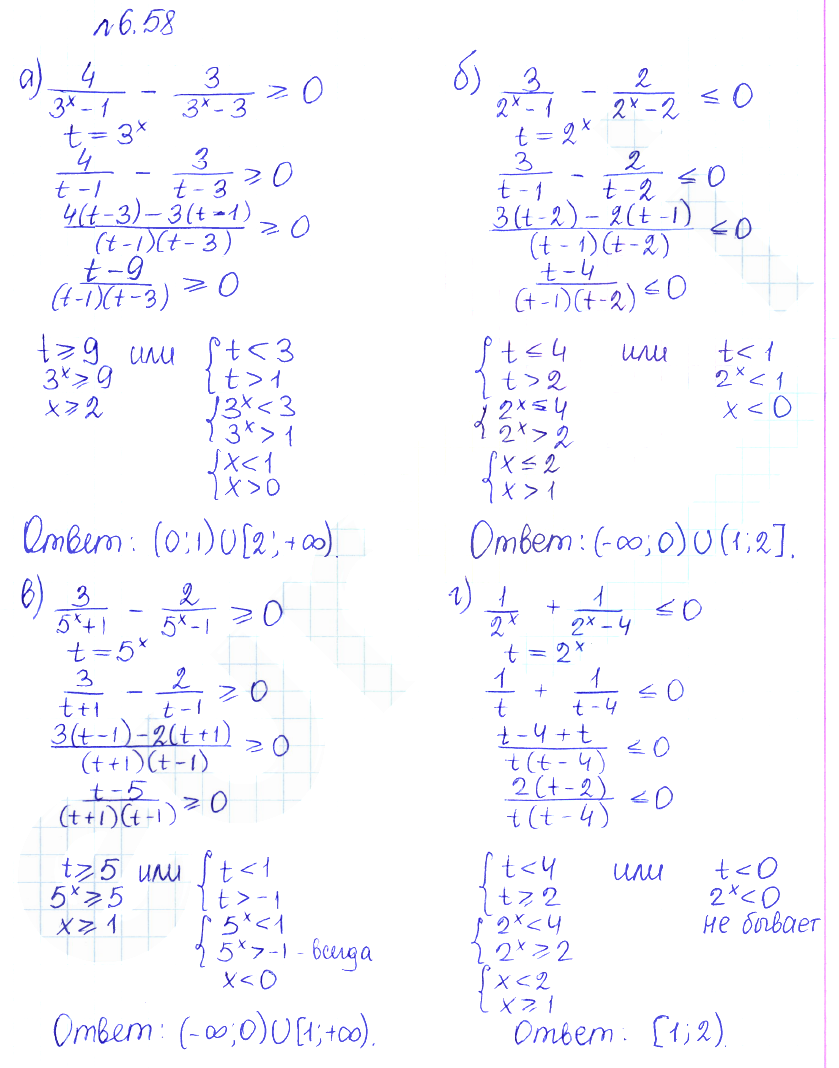 №6.58
а) 4/(3^x - 1) - 3/(3^x - 3) ≥ 0
t = 3^x
4/(t - 1) - 3/(t - 3) ≥ 0
(4(t-3) - 3(t-1))/((t-1)(t-3)) ≥ 0
(t-9)/((t-1)(t-3)) ≥ 0
t ≥ 9 или { t < 3
3^x ≥ 9 { t > 1
x ≥ 2 { 3^x < 3
{ 3^x > 1
{ x < 1
{ x > 0
Ответ: (0;1)∪[2;+∞).
б) 3/(2^x - 1) - 2/(2^x - 2) ≤ 0
t = 2^x
3/(t - 1) - 2/(t - 2) ≤ 0
(3(t-2) - 2(t-1))/((t-1)(t-2)) ≤ 0
(t-4)/((t-1)(t-2)) ≤ 0
{ t ≤ 4 или t < 1
{ t > 2 2^x < 1
{ 2^x ≤ 4 x < 0
{ 2^x > 2
{ x ≤ 2
{ x > 1
Ответ: (-∞;0)∪(1;2].
в) 3/(5^x + 1) - 2/(5^x - 1) ≥ 0
t = 5^x
3/(t + 1) - 2/(t - 1) ≥ 0
(3(t-1) - 2(t+1))/((t+1)(t-1)) ≥ 0
(t-5)/((t+1)(t-1)) ≥ 0
t ≥ 5 или { t < 1
5^x ≥ 5 { t > -1
x ≥ 1 { 5^x < 1
{ 5^x > -1 - всегда
x < 0
Ответ: (-∞;0)∪[1;+∞).
г) 1/2^x + 1/(2^x - 4) ≤ 0
t = 2^x
1/t + 1/(t - 4) ≤ 0
(t - 4 + t)/(t(t-4)) ≤ 0
(2(t-2))/(t(t-4)) ≤ 0
{ t < 4 или t < 0
{ t ≥ 2 2^x < 0
{ 2^x < 4 не бывает
{ 2^x ≥ 2
{ x < 2
{ x ≥ 1
Ответ: [1;2).